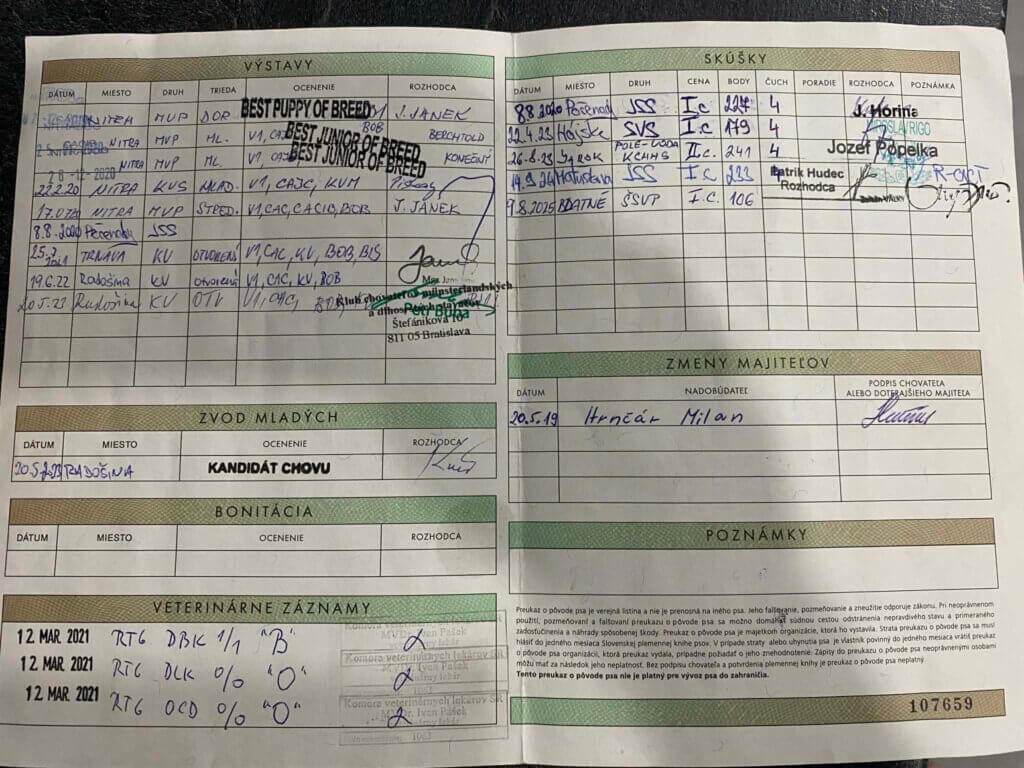 VÝSTAVY
DÁTUM MIESTO DRUH TRIEDA OCENENIE ROZHODCA
NITRA MVP DOR BEST PUPPY OF BREED J. JANEK
NITRA MVP ML. V1, BEST JUNIOR OF BREED BOB BERCHTOLD
28-12-2020 NITRA MVP ML. V1, BEST JUNIOR OF BREED KONEČNÝ
22.2.20 NITRA KVS MLAD. V1, CAJC, KVM
NITRA MVP STRED. V1, CAC, CACIB, BOB J. JANEK
8.8.2020 JSS
TRNAVA KV OTVORENÁ V1, CAC, KV, BOB, BIS
19.6.22 Radošina KV otvorená V1, CAC, KV, BOB
20.5.23 Radošina KV OTV V1, CAC,
Klub chovateľov münsterlandských
a dlhosrstých stavačov
Štefánikova 10
811 05 Bratislava
ZVOD MLADÝCH
DÁTUM MIESTO OCENENIE ROZHODCA
RADOŠINA KANDIDÁT CHOVU
BONITÁCIA
DÁTUM MIESTO OCENENIE ROZHODCA
VETERINÁRNE ZÁZNAMY
12 MAR. 2021 RTG DBK 1/1 "B" 2
12 MAR. 2021 RTG DLK 0/0 "O" 2
12 MAR. 2021 RTG OCD 0/0 "O" 2
Komora veterinárnych lekárov SR
MVDr. Ivan Pášek
1063
SKÚŠKY
DÁTUM MIESTO DRUH CENA BODY ČUCH PORADIE ROZHODCA POZNÁMKA
8.8.2020 JSS I.c 227 4 J. Horina
22.4.23 Hájske SVS I.c 179 4
26.8.23 POLE-VODA KCHMS II.c. 241 4 Jozef Popelka
JSS I.c 233 Patrik Hudec Rozhodca R-CACT
9.8.2025 BLATNÉ ŠSVP I.C. 106
ZMENY MAJITEĽOV
DÁTUM NADOBÚDATEĽ PODPIS CHOVATEĽA ALEBO DOTERAJŠIEHO MAJITEĽA
20.5.19 Hrnčár Milan
POZNÁMKY
Preukaz o pôvode psa je verejná listina a nie je prenosná na iného psa. Jeho falšovanie, pozmeňovanie a zneužitie odporuje zákonu. Pri neoprávnenom
použití, pozmeňovaní a falšovaní preukazu o pôvode psa sa možno domáhať súdnou cestou odstránenia nepravdivého stavu a primeraného
zadosťučinenia a náhrady spôsobenej škody. Preukaz o pôvode psa je majetkom organizácie, ktorá ho vystavila. Strata preukazu o pôvode psa sa musí
hlásiť do jedného mesiaca Slovenskej plemennej knihe psov. V prípade straty alebo uhynutia psa je vlastník povinný do jedného mesiaca vrátiť preukaz
o pôvode psa organizácii, ktorá preukaz vydala, prípadne požiadať o jeho znehodnotenie. Zápisy do preukazu o pôvode psa neoprávnenými osobami
môžu mať za následok jeho neplatnosť. Bez podpisu chovateľa a potvrdenia plemennej knihy je preukaz o pôvode psa neplatný.
Tento preukaz o pôvode psa nie je platný pre vývoz psa do zahraničia.
107659